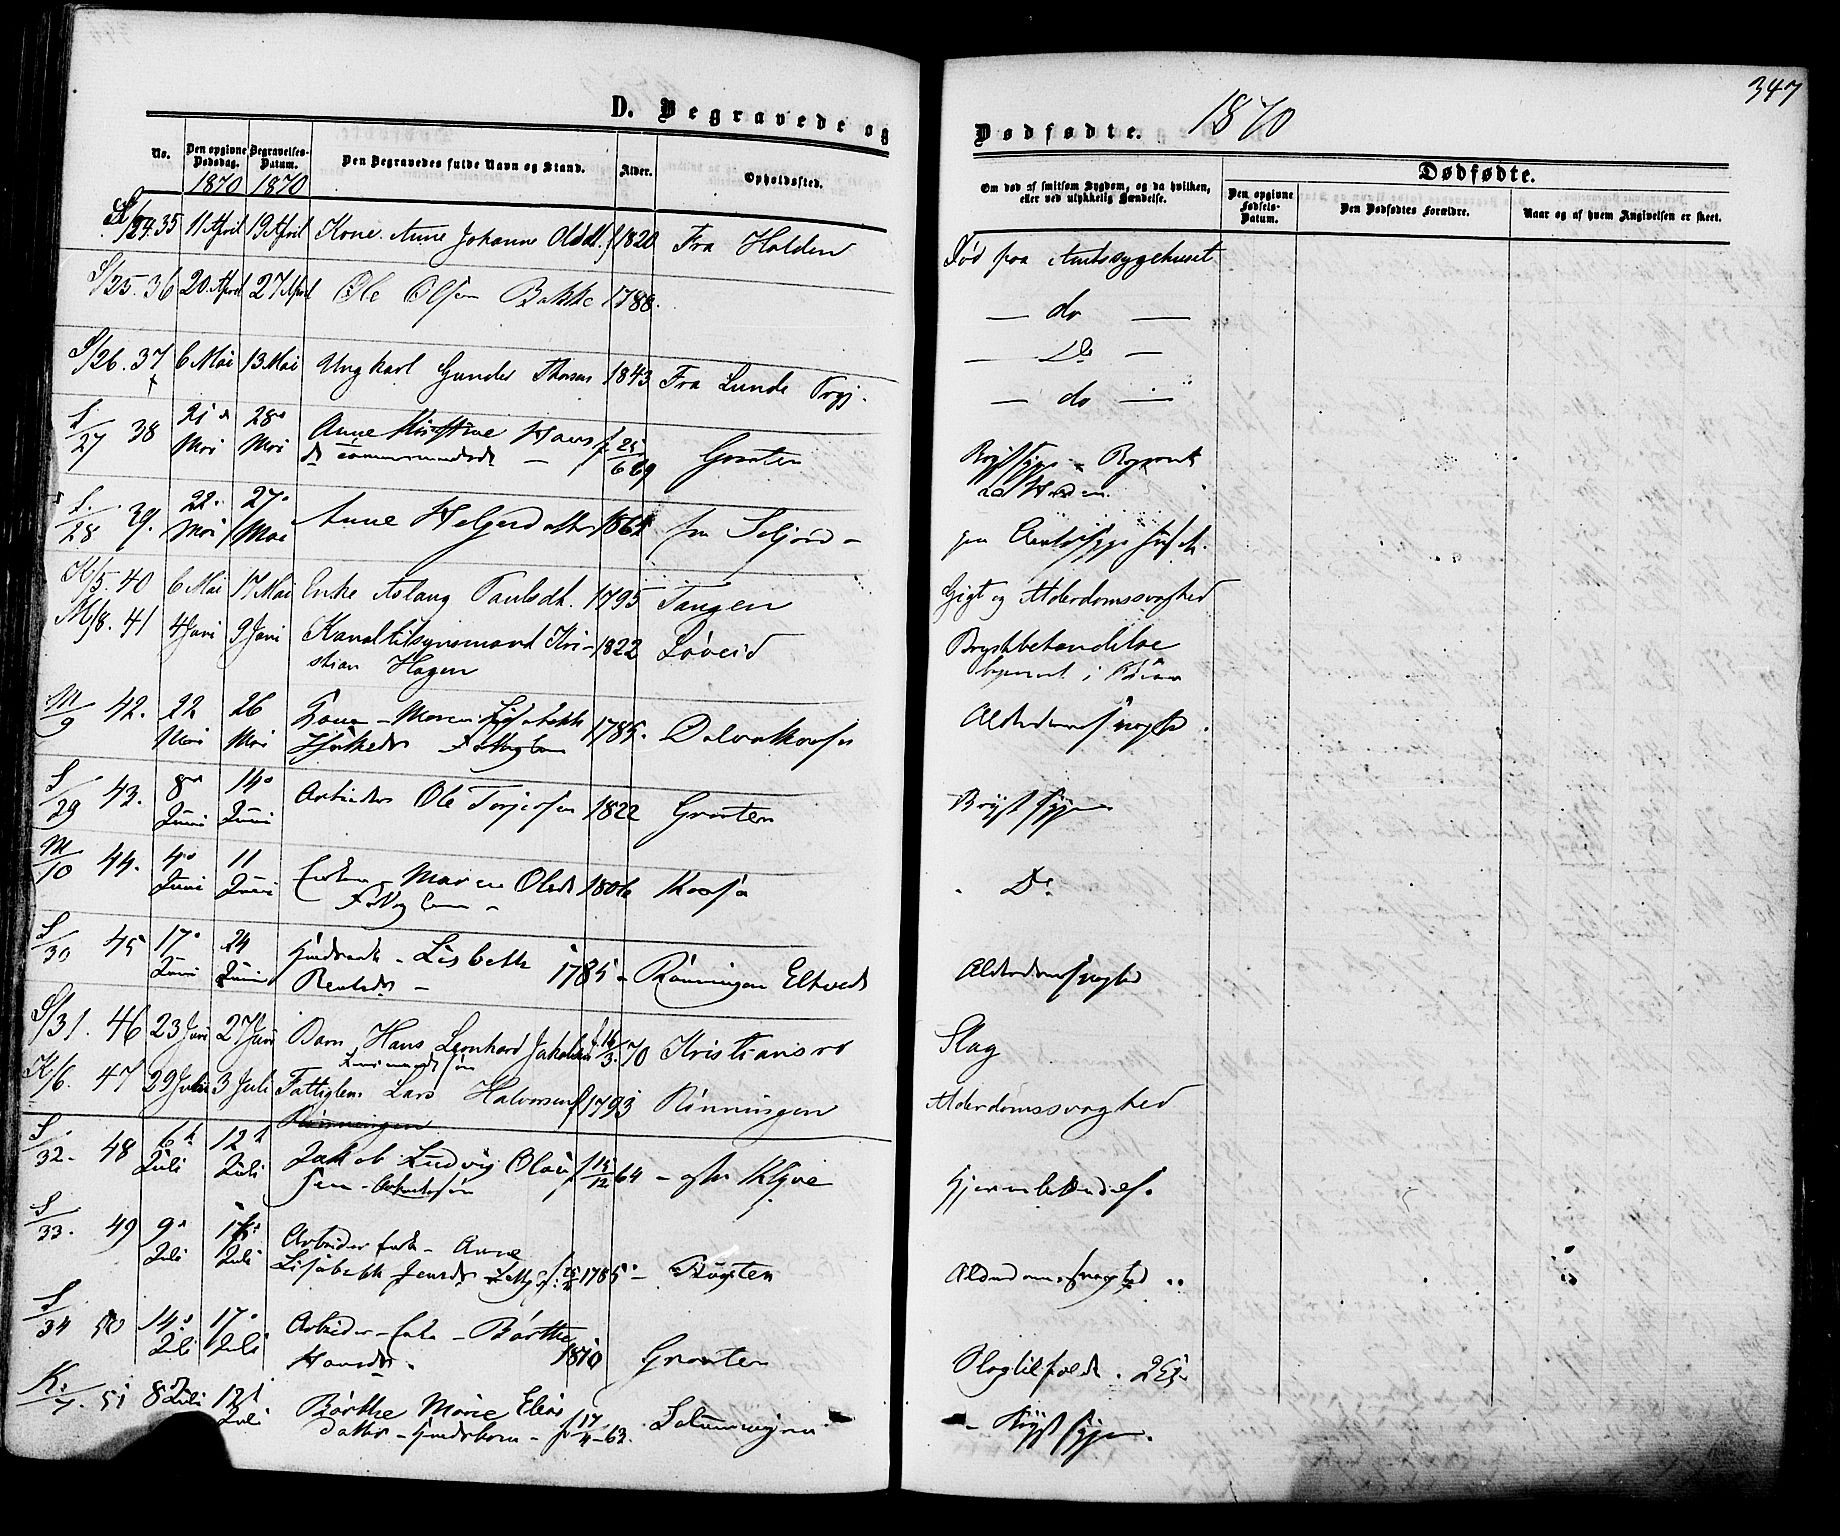 347
D. Begravede og Dødfødte. 1870
No.
Den opgivne Dødsdag. 1870
Begravelses-Datum. 1870
Den Begravedes fulde Navn og Stand.
Alder.
Opholdssted.
Om død af smitsom Sygdom, og da hvilken, eller ved ulykkelig Hændelse.
Dødfødte.
Den opgivne Fødsels-Datum.
Den Dødfødtes Forældre.
Naar og af hvem Angivelsen er skeet.
S/24. 35 11 April 19 April Kone Anne Johanne Olsdt. f 1820 Fra Holden Død paa Amtssygehuset
S/25. 36 20. April 27 April Ole Olsen Bakke 1788. — do —
S/26. 37 6 Mai 13 Mai Ungkarl Gunder Thorsen 1843 Fra Lunde Prgj. — Do —
— do —
S/27 38 21 Mai 28 Mai Anne Kirstine Hans
dt f. 25/6 69 Graaten
S/28 39. 22. Mai 27. Mai Anne Helgesdatter fra Seljord - paa Amtssygehuset.
K/5. 40 6 Mai 17 Mai Enke Aslaug Paulsdt. 1795 Tangen Gigt og Alderdomssvaghed
M/8. 41 4 Juni 9 Juni Kanaltilsynsmand Kri-
stian Hagen 1822 Løveid Brystbetændelse
M/9 42. 22 Mai 26 Mai Maren Lisabeth 1785. Alderdomssvaghd.
S/29 43. 8 Juni 14 Juni Arbeider Ole Terjesen 1822 Graaten Brystsyge
M/10 44. 4 Juni 11 Juni Enke - Maren Olsdt 1806 Do.
S/30 45 17 Juni 24 Juni Lisbeth 1785 - Rønningen Eltvedt Alderdomssvaghed
S/31. 46 23 Juni 27 Juni Barn Hans Lernhard Jakobsen f. 16/3. 70 Kristiansro Slag
K/6. 47 29 Juni 3 Juli Fattiglem Lars Halvorsen f 1793 Rønningen Alderdomssvaghed
Rønningen
S/32. 48 6 Juli 12 Juli Jakob Ludvig Olau
sen - f 15/12 64 - Klyve Hjernebetændelse.
S/33. 49 9 Juli Juli Arbeider enk - Anne
Lisabeth Jensdt 1785 - Bugten Alderdomssvaghed
S/34 50 14. Juli 17. Juli Arbeider-Enke - Børthe
Hansdt. 1810 Graaten Slagtilfælde.
K/7. 51 8 Juli 12 Juli Børthe Marie Elias
datter - f 17/4 - 62. Brystsyge.